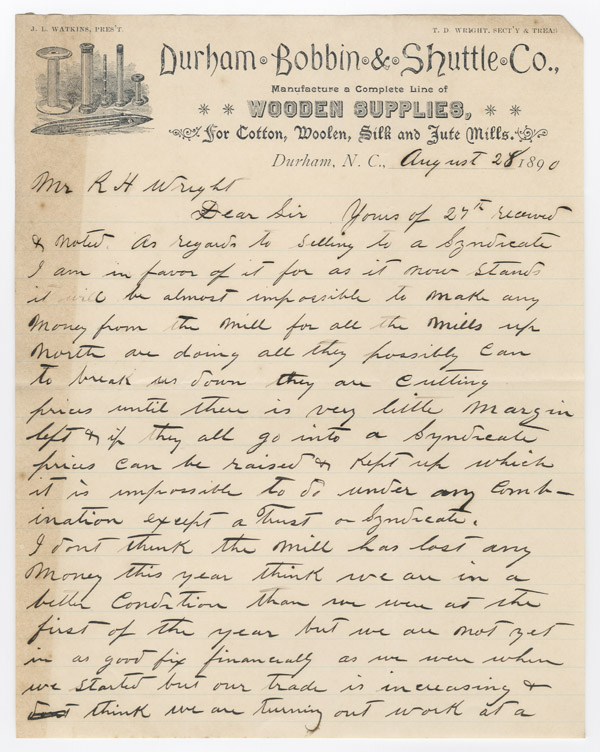 J. L. WATKINS, PRES'T.
T. D. WRIGHT, SECT'Y & TREAS
Durham Bobbin & Shuttle Co.,
Manufacture a Complete Line of
WOODEN SUPPLIES,
For Cotton, Woolen, Silk and Jute Mills.
Durham, N. C., August 28 1890
Mr R H Wright
Dear Sir Yours of 27th received
& noted. As regards to selling to a Syndicate
I am in favor of it for as it now stands
it will be almost impossible to make any
money from the mill for all the mills up
North are doing all they possibly can
to break us down they are cutting
prices until there is very little margin
left & if they all go into a Syndicate
prices can be raised & kept up which
it is impossible to do under any Comb-
ination except a Trust or Syndicate.
I dont think the mill has lost any
money this year think we are in a
better Condition than we were at the
first of the year but we are not yet
in as good fix financially as we were when
we started but our trade is increasing &
think we are turning out work at a